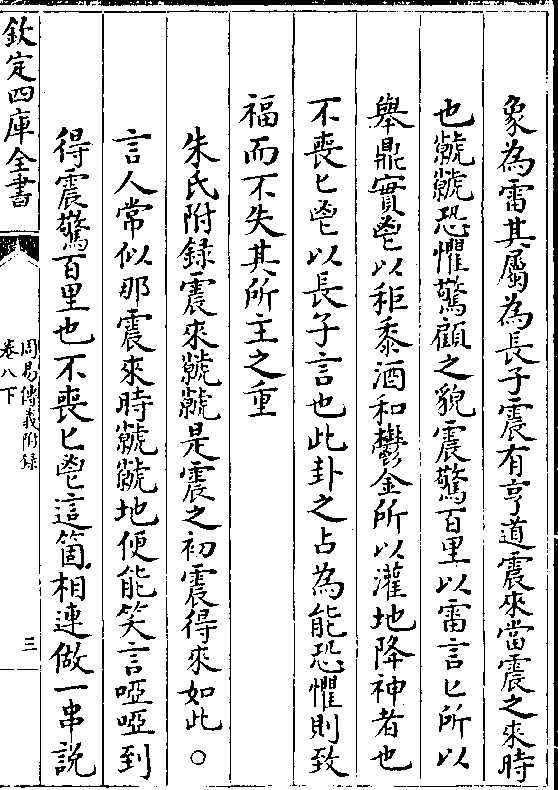 象為雷其屬為長子震有亨道震來當震之來時
也虩虩恐懼驚顧之貌震驚百里以雷言匕所以
舉鼎實鬯以秬黍酒和鬱金所以灌地降神者也
不喪匕鬯以長子言也此卦之占為能恐懼則致
福而不失其所主之重
朱氏附録震來虩虩是震之初震得來如此○
言人常似那震來時虩虩地便能笑言啞啞到
得震驚百里也不喪匕鬯這箇相連做一串說
欽定四庫全書
周易傳義附録
卷八下
三